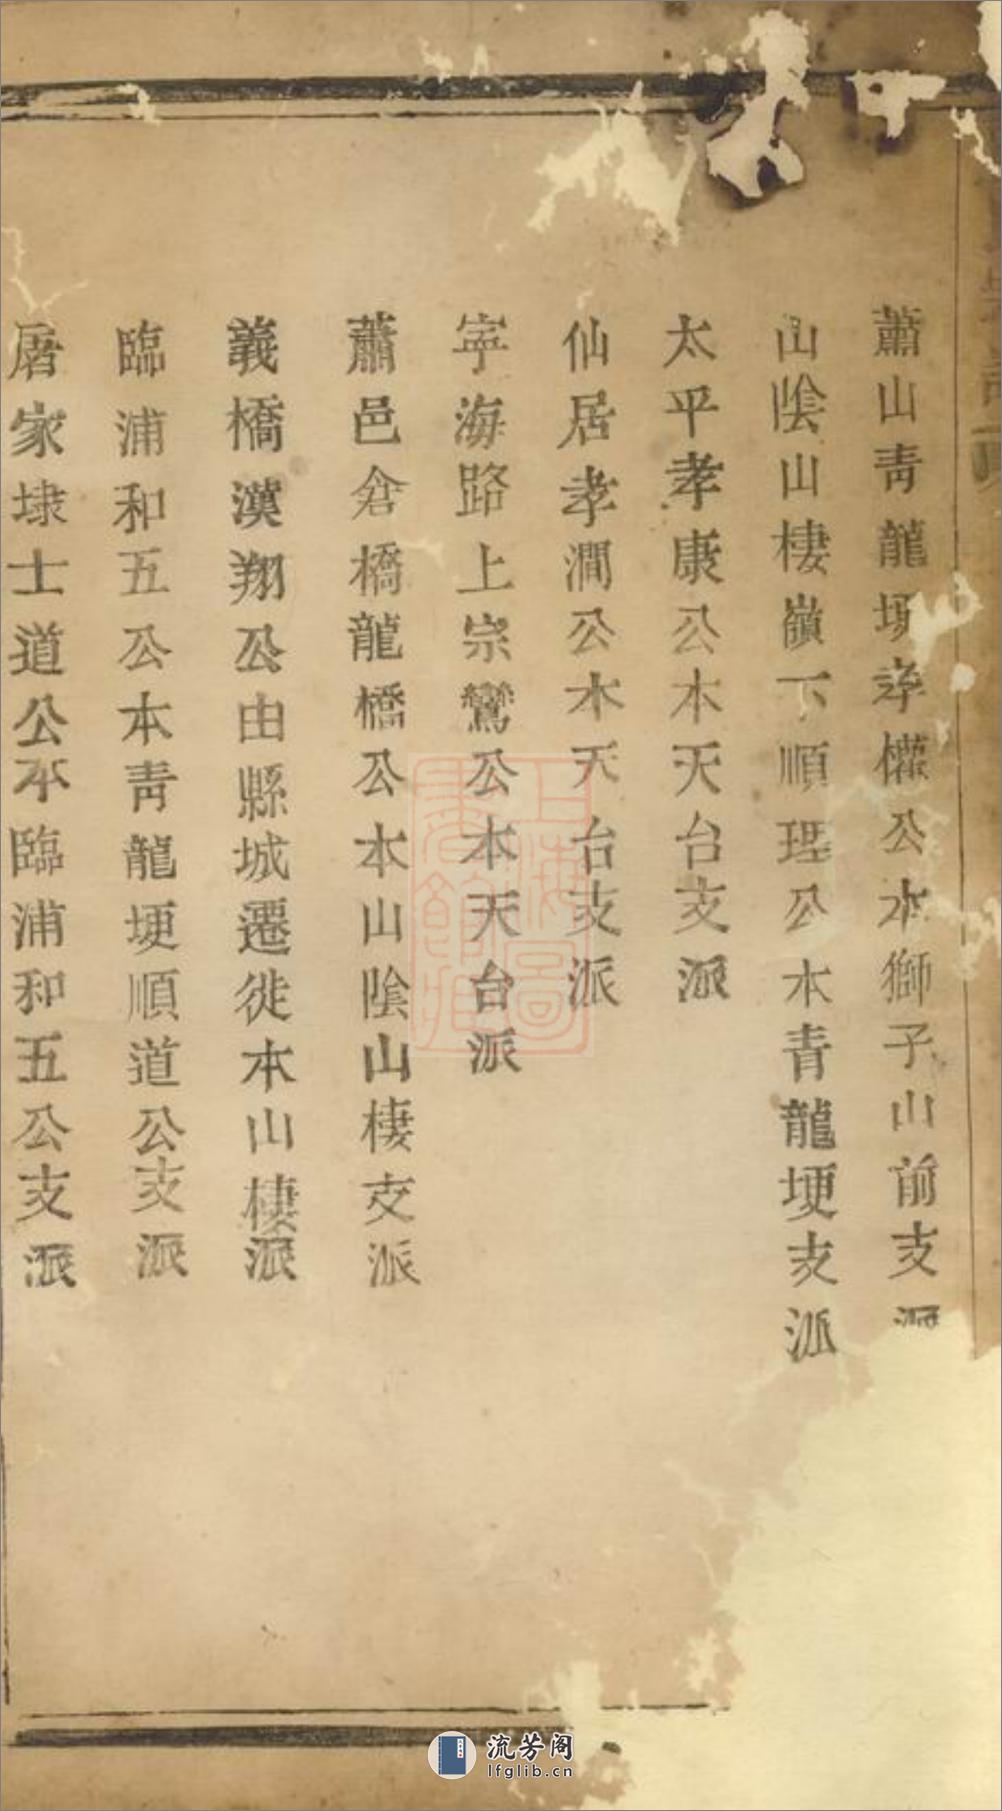 蕭山靑龍埂孝權公本獅子山前支派
山陰山棲嶺下順理公本青龍埂支派
太平孝康公本天台支派
仙居孝澗公本天台支派
寧海路上宗鸞公本天台派
蕭邑倉橋龍橋公本山陰山棲支派
義橋漢翔公由縣城遷徙本山棲派
臨浦和五公本靑龍埂順道公支派
屠家埭士道公本臨浦和五公支派
上海圖書館藏
流芳阁
lfglib.cn